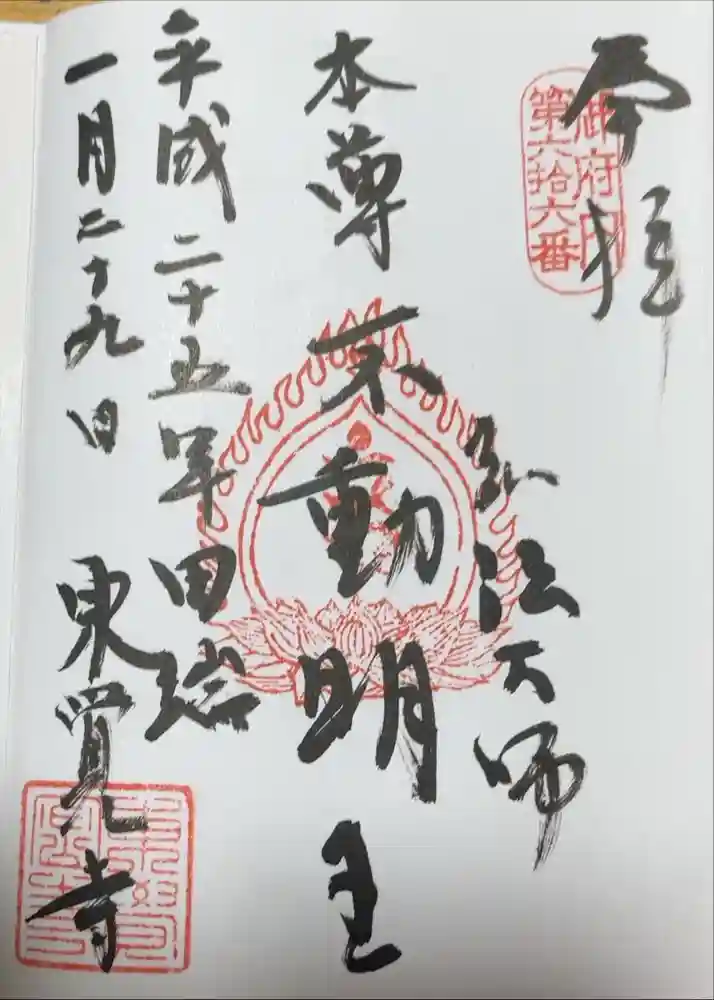 奉拝
御府内
第六拾六番
弘法大師
本尊 不動明王
平成二十五年 田端
一月二十九日 東覚寺